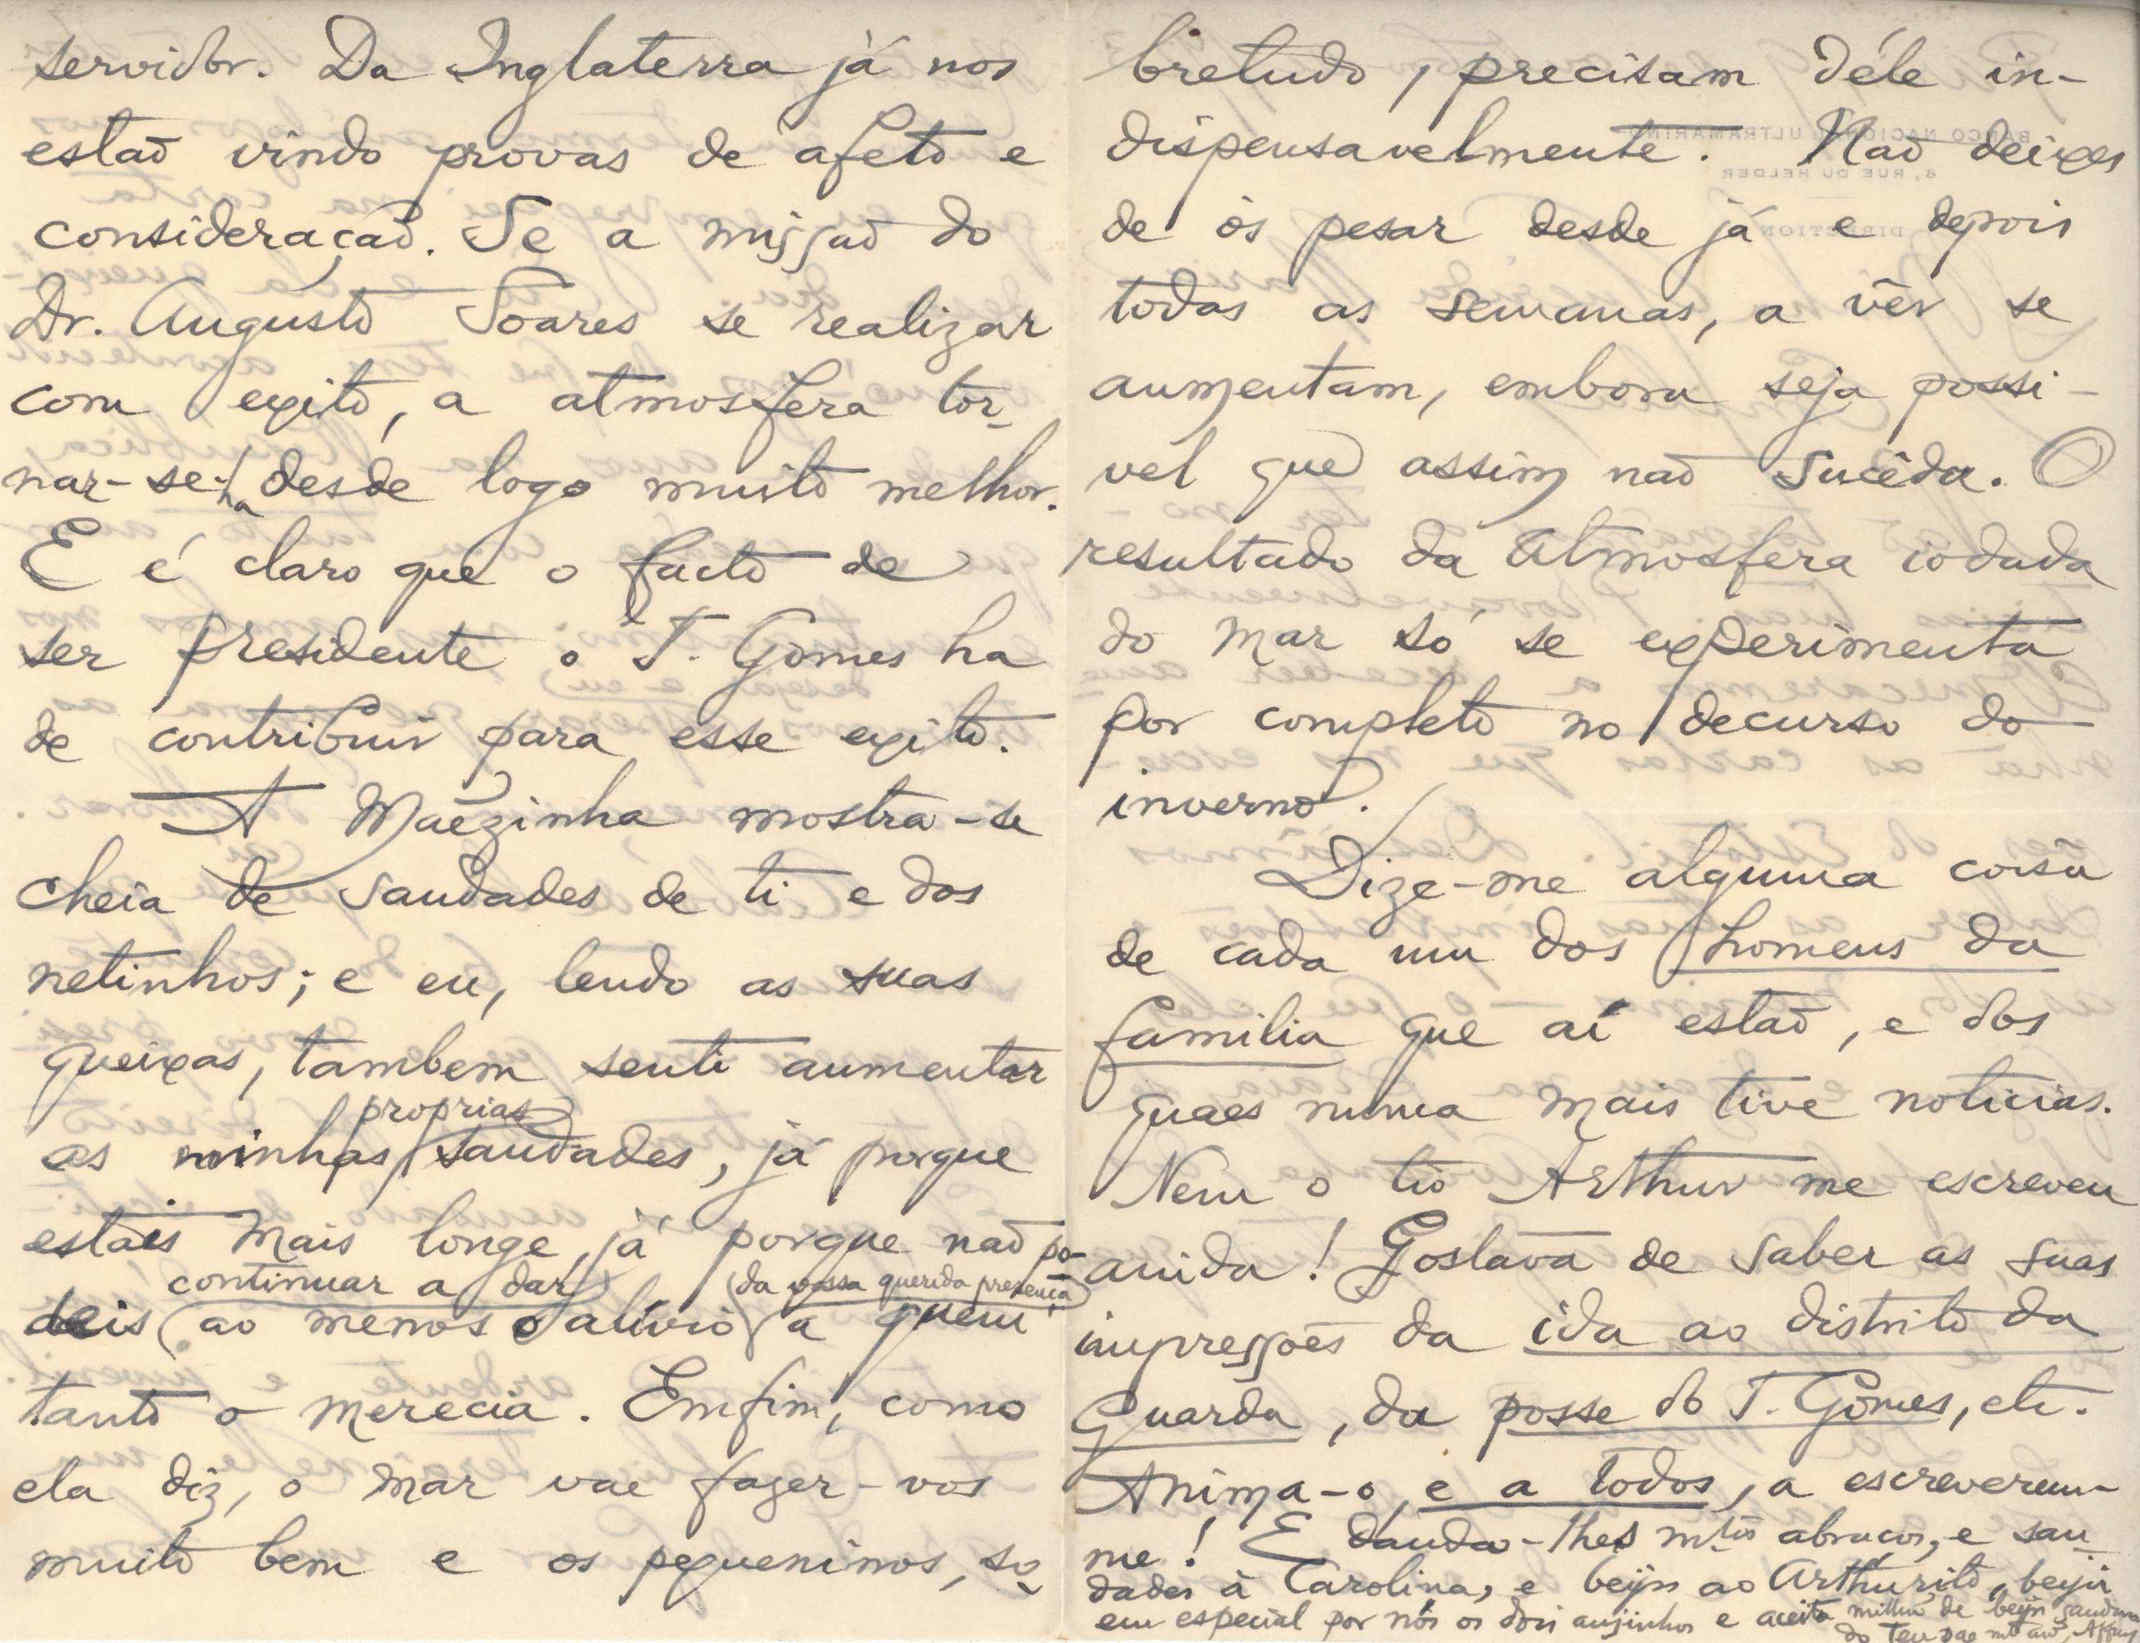 servidor. Da Inglaterra já nos
estaõ vindo provas de afeto e
consideraçaõ. Se a missaõ do
Dr. Augusto Soares se realizar
com exito, a atmosfera tor-
nar-se-ha desde logo muito melhor.
E é claro que o facto de
ser presidente o T. Gomes ha
de contribuir para esse exito.
A Maẽzinha mostra-se
cheia de saudades de ti e dos
netinhos; e eu, lendo as suas
queixas, tambem senti aumentar
proprias
as minhas saudades, já porque
estaes mais longe, já porque naõ po-
continuar a dar (da vossa querida presença)
deis ao menos o alivio a quem
tanto o merecia. Emfim, como
ela diz, o mar vae fazer-vos
muito bem e os pequeninos, so-
bretudo, precisam déle in-
dispensavelmente. Naõ deixes
de os pesar desde já e depois
todas as semanas, a vêr se
aumentam, embora seja possi-
vel que assim naõ sucêda. O
resultado da atmosfera iodada
do mar só se experimenta
por completo no decurso do
inverno.
Dize-me alguma coisa
de cada um dos homens da
familia que aí estaõ, e dos
quaes nunca mais tive noticias.
Nem o tio Arthur me escreveu
ainda! Gostava de saber as suas
impressoẽs da ida ao distrito da
Guarda, da posse do T. Gomes, etc.
Anima-o, e a todos, a escreverem-
me! E dando-lhes mtos abraços, e sau-
dades à Carolina, e beijos ao Arthurito, beija
em especial por nós os dois anjinhos e aceita milhões de beijos
do teu pae mto amo, Affonso
BANCO NACIONAL ULTRAMARINO
8, RUE DU HELDER
DIRECTION